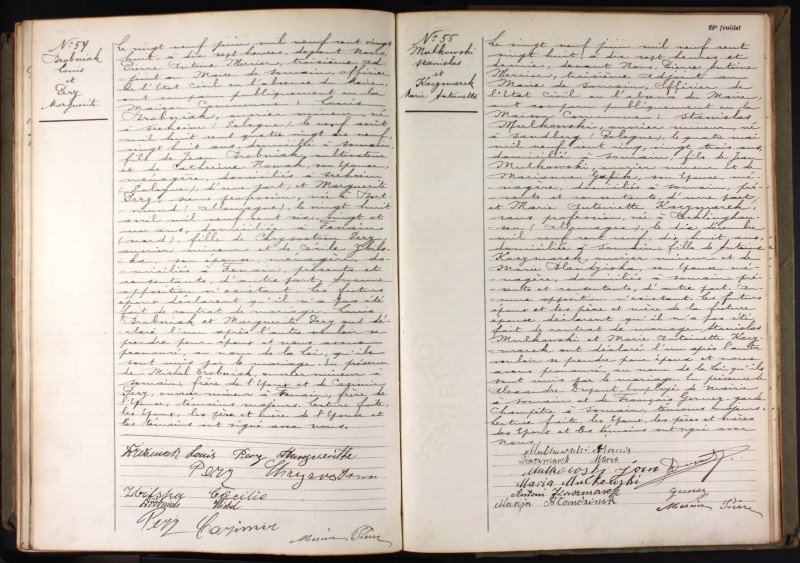 N° 54
Drobniak
Louis
et
Perz
Marguerite
Le vingt neuf juin mil neuf cent vingt
huit, à dix sept heures, devant Nous,
Pierre Antoine Mercier, troisième ad-
joint au Maire de Somain, officier
de l'Etat Civil en l'absence du Maire,
ont comparu publiquement en la
Maison Commune : Louis
Drobniak, ouvrier mineur, né
à (Pologne), le neuf août
mil huit cent quatre vingt dix neuf,
vingt huit ans, domicilié à Somain,
fils de Jean Drobniak, cultivateur
et de Catherine Nowak, son épouse,
ménagère, domiciliés à
(Pologne), d'une part; et Marguerite
Perz, sans profession, née à Dort-
mund (Allemagne), le vingt huit
avril mil neuf cent sept, vingt et
un ans, domiciliée à Fenain
(Nord), fille de Chrysostôme Perz,
ouvrier mineur et de Cécile
son épouse, ménagère, do-
miciliés à Fenain, présents et
consentants, d'autre part. Aucune
opposition n'existant. Les futurs
époux déclarent qu'il n'a pas été
fait de contrat de mariage. Louis
Drobniak et Marguerite Perz ont dé-
claré l'un après l'autre vouloir se
prendre pour époux et nous avons
prononcé, au nom de la loi, qu'ils
sont unis par le mariage. En présence
de Michel Drobniak, ouvrier mineur à
Somain, frère de l'époux et de Casimir
Perz, ouvrier mineur à Fenain, frère de
l'épouse, témoins majeurs. Lecture faite,
les époux, les père et mère de l'épouse et
les témoins ont signé avec nous.
Louis Perz Margueritte
Perz
Cecilie
Drobniak Michel
Perz Cazimir
Mercier Pierre
28e feuillet
N° 55
Mulkowski
Stanislas
et
Kaczmarek
Marie Antoinette
Le vingt neuf juin mil neuf cent
vingt huit, à dix sept heures et
demie, devant Nous, Pierre Antoine
Mercier, troisième Adjoint au
Maire de Somain, Officier de
l'Etat Civil en l'absence du Maire,
ont comparu publiquement en la
Maison Commune : Stanislas
Mulkowski, ouvrier mineur, né
à (Pologne), le quatre mai
mil neuf cent cinq, vingt trois ans,
domicilié à Somain, fils de Jean
Mulkowski, ouvrier mineur et de
Marianne Gapik, son épouse, mé-
nagère, domiciliés à Somain, pré-
sents et consentants, d'une part;
et Marie Antoinette Kaczmarek,
sans profession, née à Recklinghau-
sen (Allemagne), le dix décembre
mil neuf cent neuf, dix huit ans,
domiciliée à Somain, fille de Antoine
Kaczmarek, ouvrier mineur et de
Marie son épouse, mé-
nagère, domiciliés à Somain, pré-
sents et consentants, d'autre part. Au-
cune opposition n'existant. Les futurs
époux et les père et mère de la future
épouse déclarent qu'il n'a pas été
fait de contrat de mariage. Stanislas
Mulkowski et Marie Antoinette Kacz-
marek ont déclaré l'un après l'autre
vouloir se prendre pour époux et nous
avons prononcé, au nom de la loi, qu'ils
sont unis par le mariage. En présence de
Alexandre employé de mairie
à Somain et de François Germez, garde
Champêtre à Somain, témoins majeurs.
Lecture faite les époux, les pères et mères
des époux et les témoins ont signé avec
Nous.
Mulkowski
Kaczmarek Maria
Mulkowski
Maria Mulkowski
Antoni Kaczmarek
Maryja
Mercier Pierre